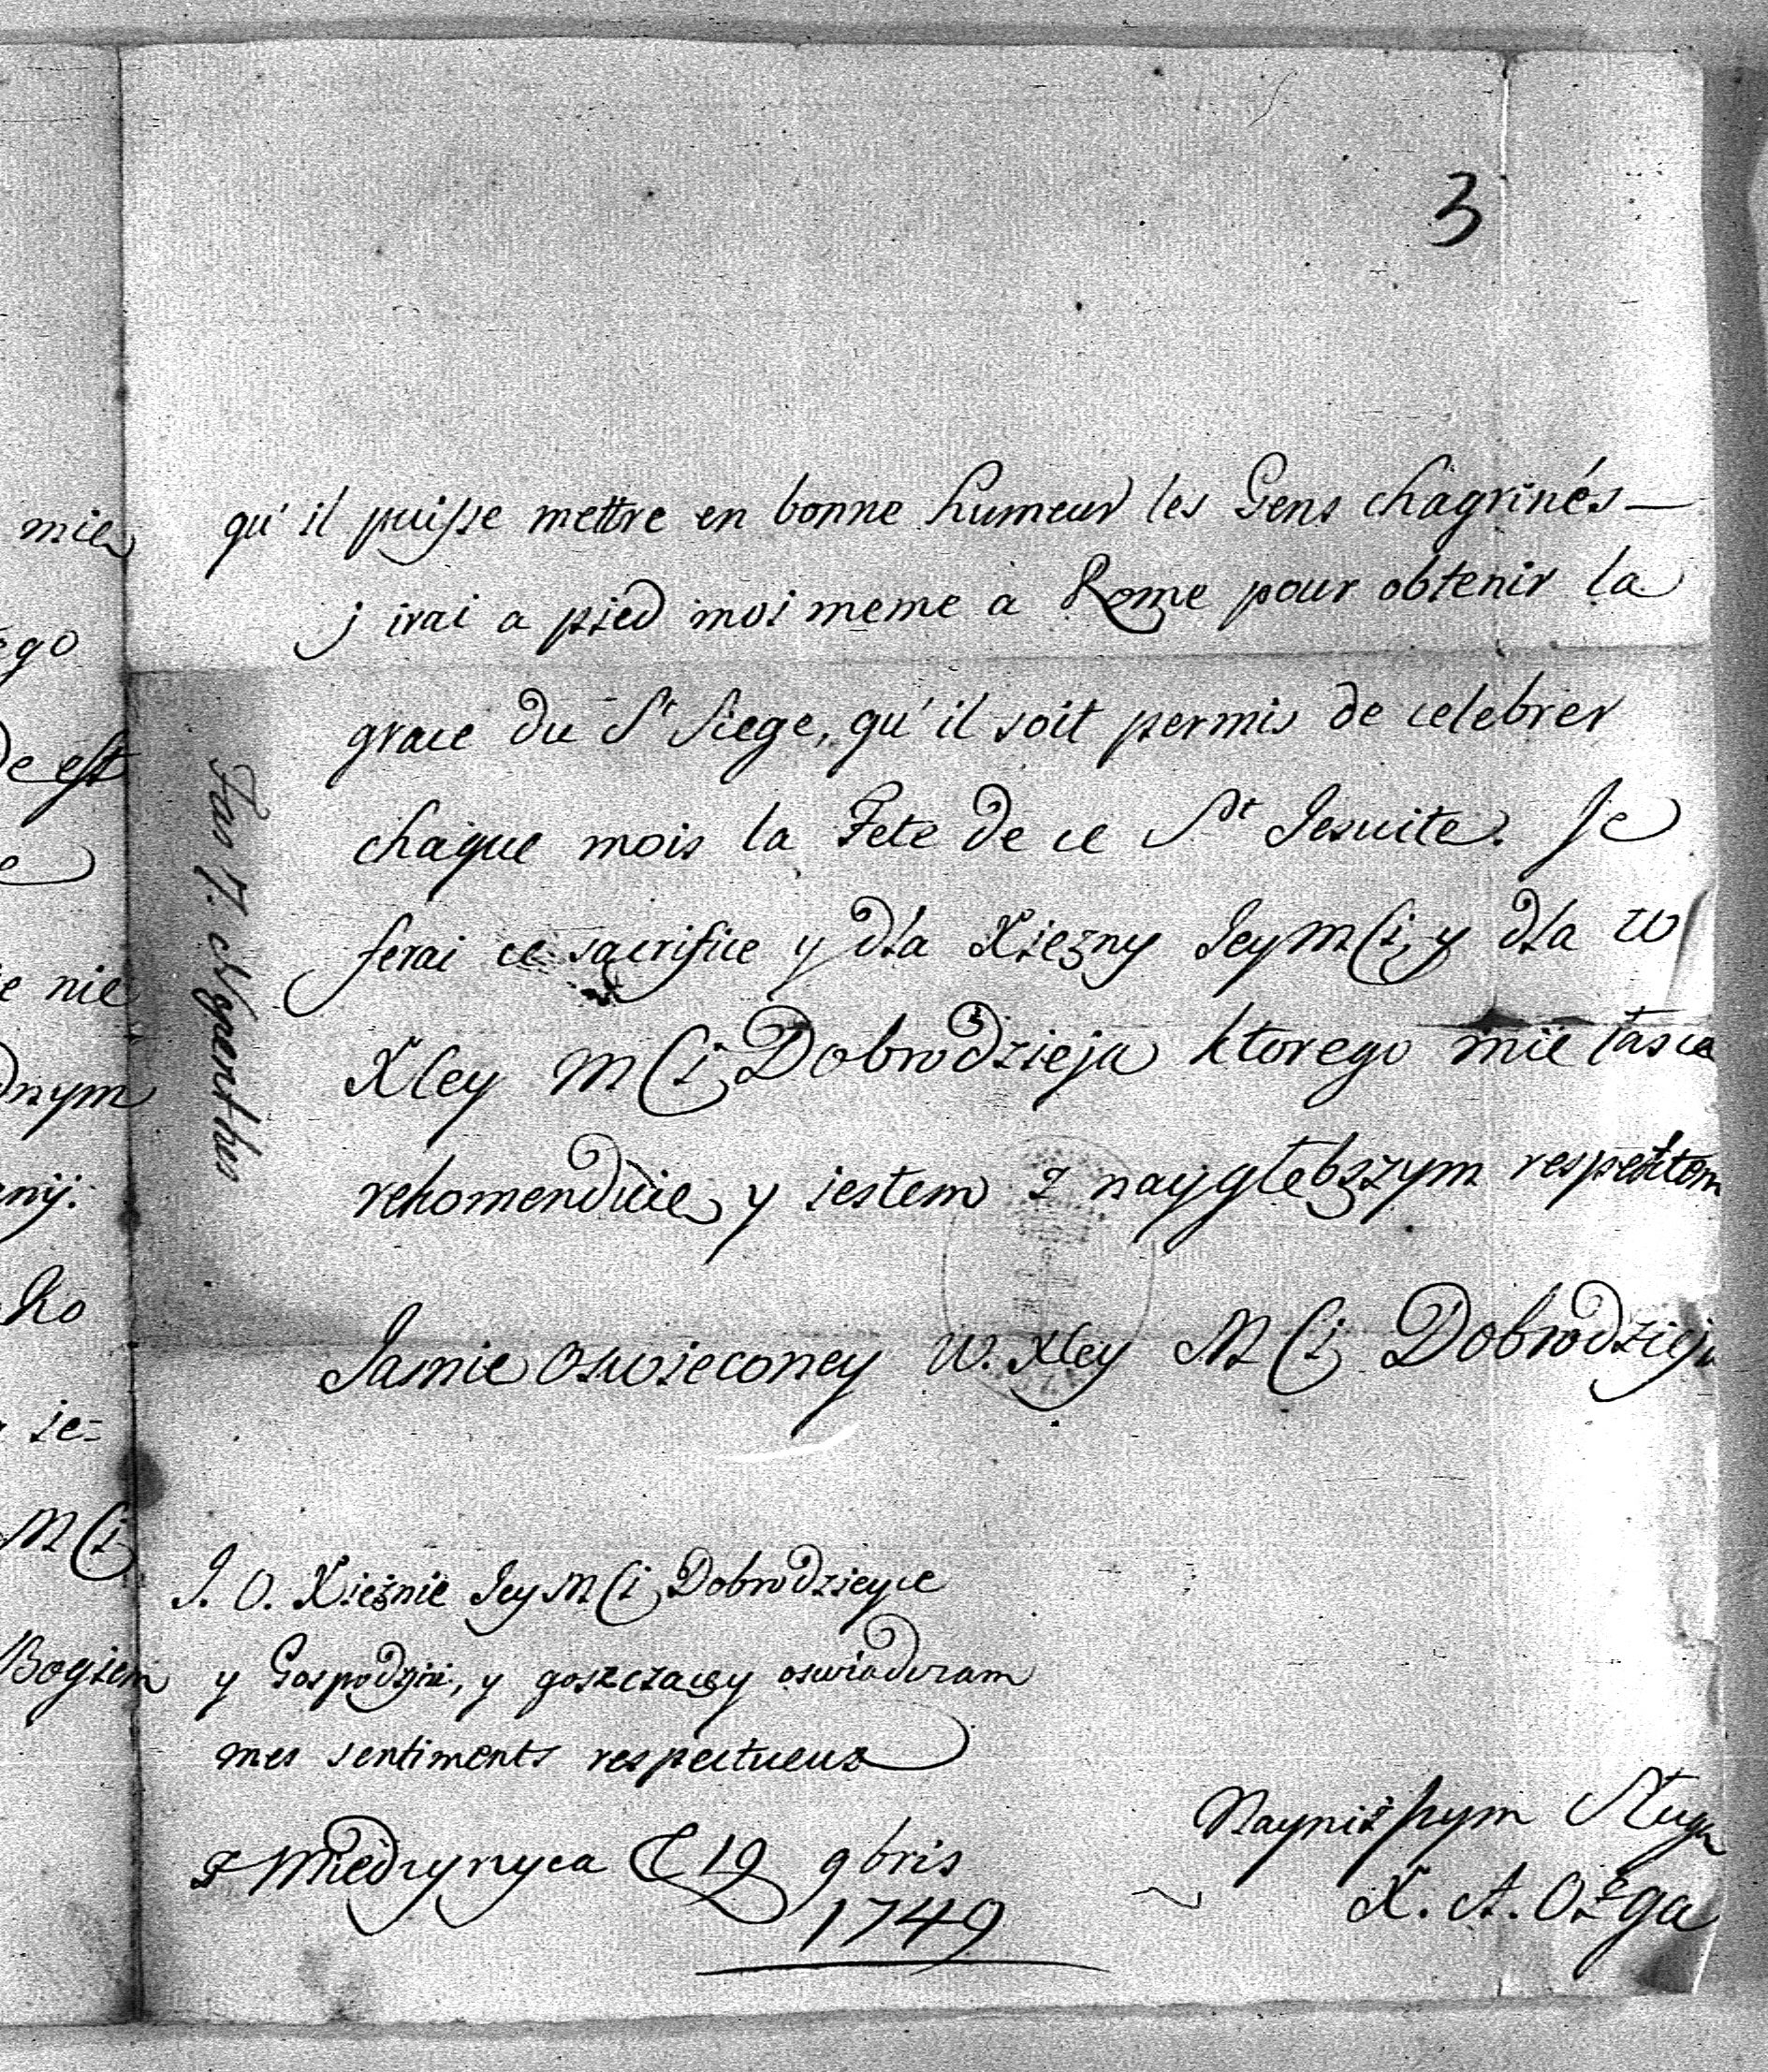 3
mie
qu'il puisse mettre en bonne humeur les Gens chagrinés —
j irai a pied moi meme a Rome pour obtenir la
ego
grace du St Siege, qu'il soit permis de celebrer
de est
chaque mois la Fete de ce St Jesuite. Je
e
ferai ce sacrifice y dla Xiezny Jey Mci, y dla W
e nie
Xcey Mci Dobrodzieja ktorego mie łasce
dnym
rekomenduie y iestem z naygłebszym respektem
Jasnie oswieconey W. Xcey Mci Dobrodzieja
ko
ie=
Mci
J. O. Xiężnie Jey Mci Dobrodzieyce
Bogiem
y Gospodyni, y goszczacey oswiadczam
mes sentiments respectueux
Nayniższym Sługa
z Miedzyrzyca D 19 9bris
1749
X. A. Ożga